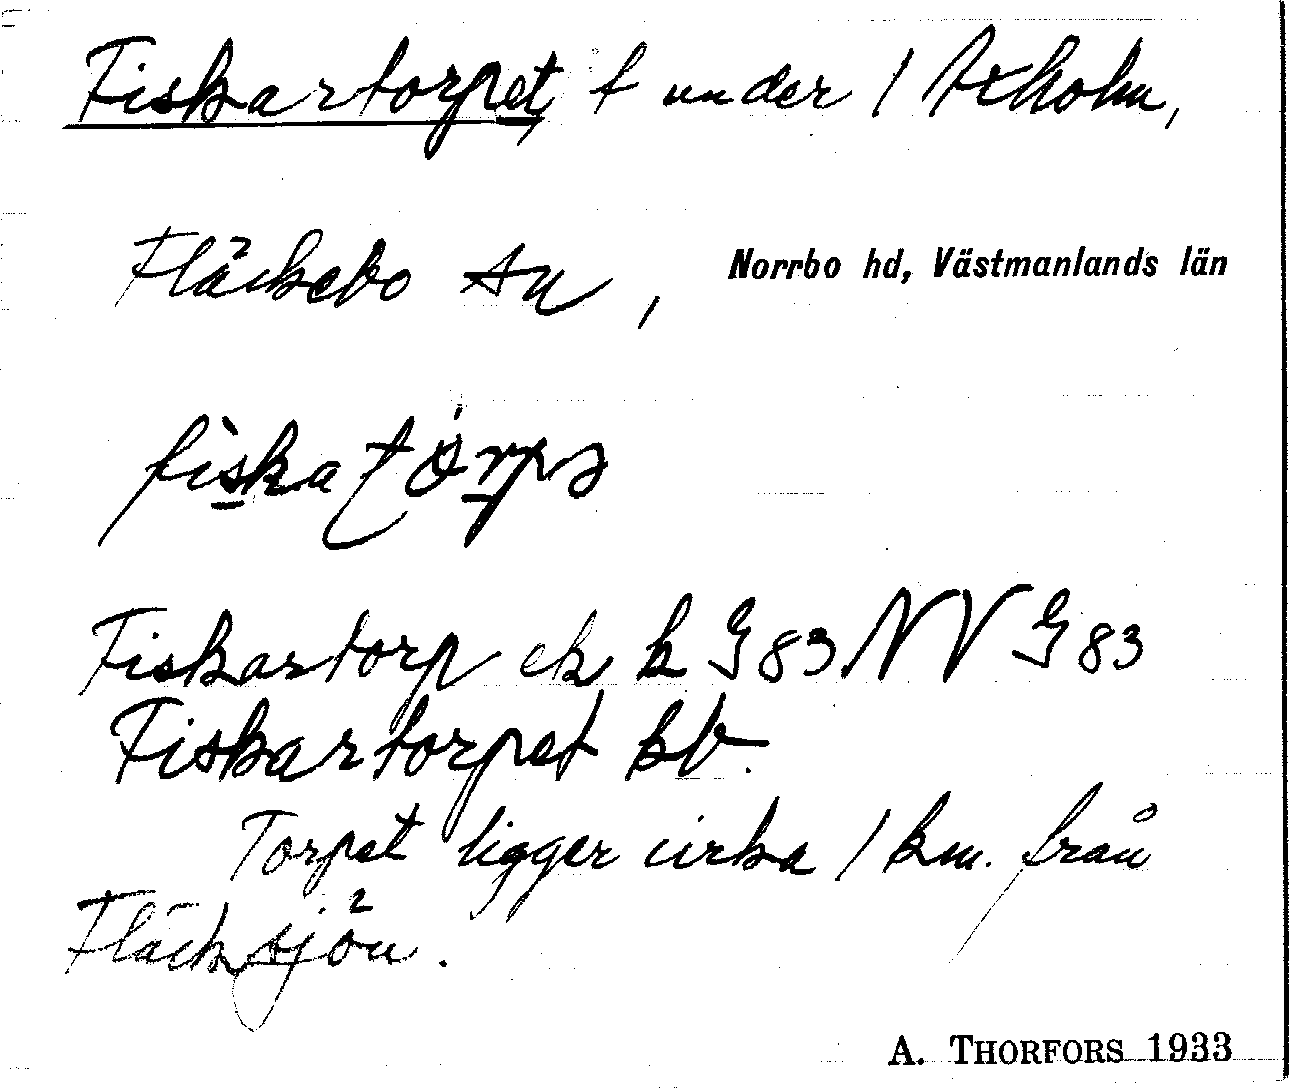 Fiskartorpet, t under 1 Axholm,
Fläckebo sn, Norrbo hd, Västmanlands län
fiskatørpə
Fiskartorp ek k G 83 NV G 83
Fiskartorpet kb.
Torpet ligger cirka 1 km. från
Fläcksjön.
A. THORFORS 1933